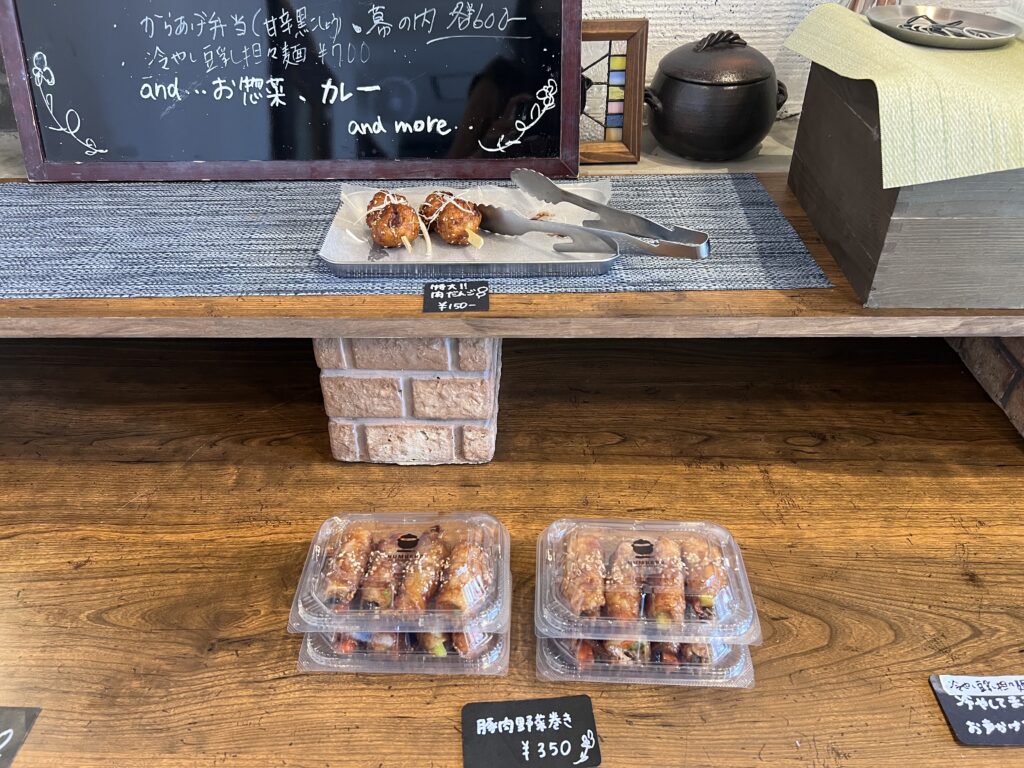 からあげ弁当(甘辛黒こしょう)、幕の内 各600-
冷やし豆乳担々麺 ¥700
and...お惣菜、カレー
and more..
特大!!
肉だんご
¥150-
豚肉野菜巻き
¥350
冷やし豆乳担々麺
冷やしてま
お声かけ